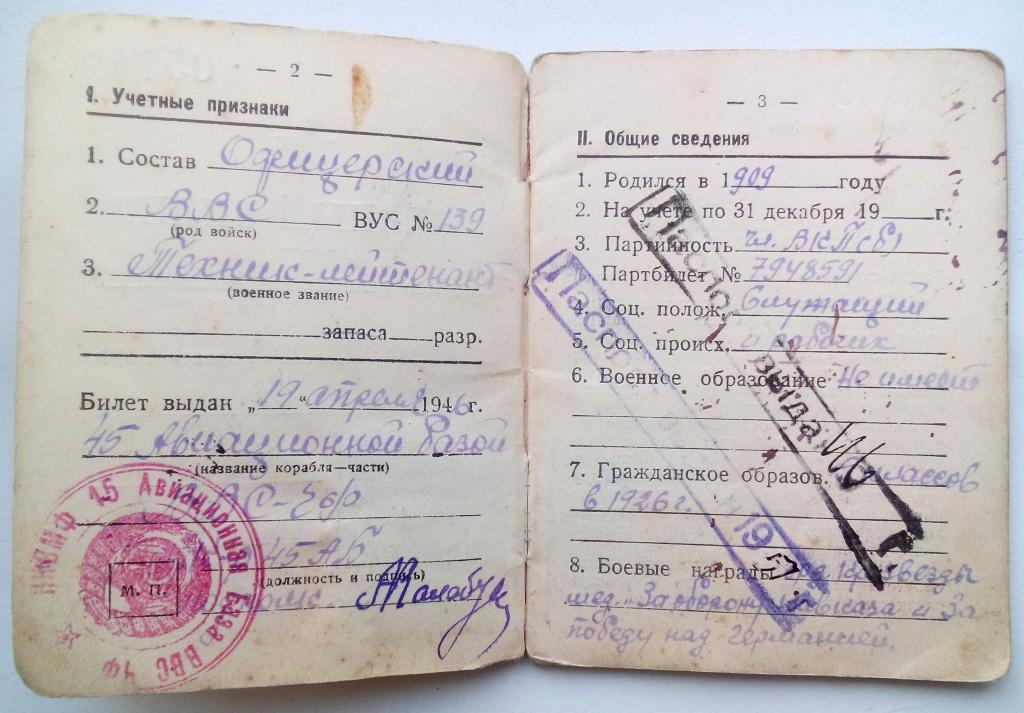 — 2 —
I. Учетные признаки
1. Состав Офицерский
2. ВВС ВУС № 139
(род войск)
3. Техник-лейтенант
(военное звание)
запаса разр.
Билет выдан „19“ апреля 1946 г.
45 Авиационной базой
(название корабля—части)
ВВС ЧФ
45 АБ
(должность и подпись)
М. П.
45 Авиационная База ВВС ЧФ
— 3 —
II. Общие сведения
1. Родился в 1909 году
2. На учете по 31 декабря 19 г.
3. Партийность чл. ВКП(б)
Партбилет № 7948591
4. Соц. полож. Служащий
5. Соц. происх. и рабочих
6. Военное образование Не имеет
7. Гражданское образов. классов
в 1926 г.
8. Боевые награды Орд. Кр. Звезды
мед. За оборону Кавказа и За
победу над Германией.
Паспорт выдан
Паспорт 19 г.